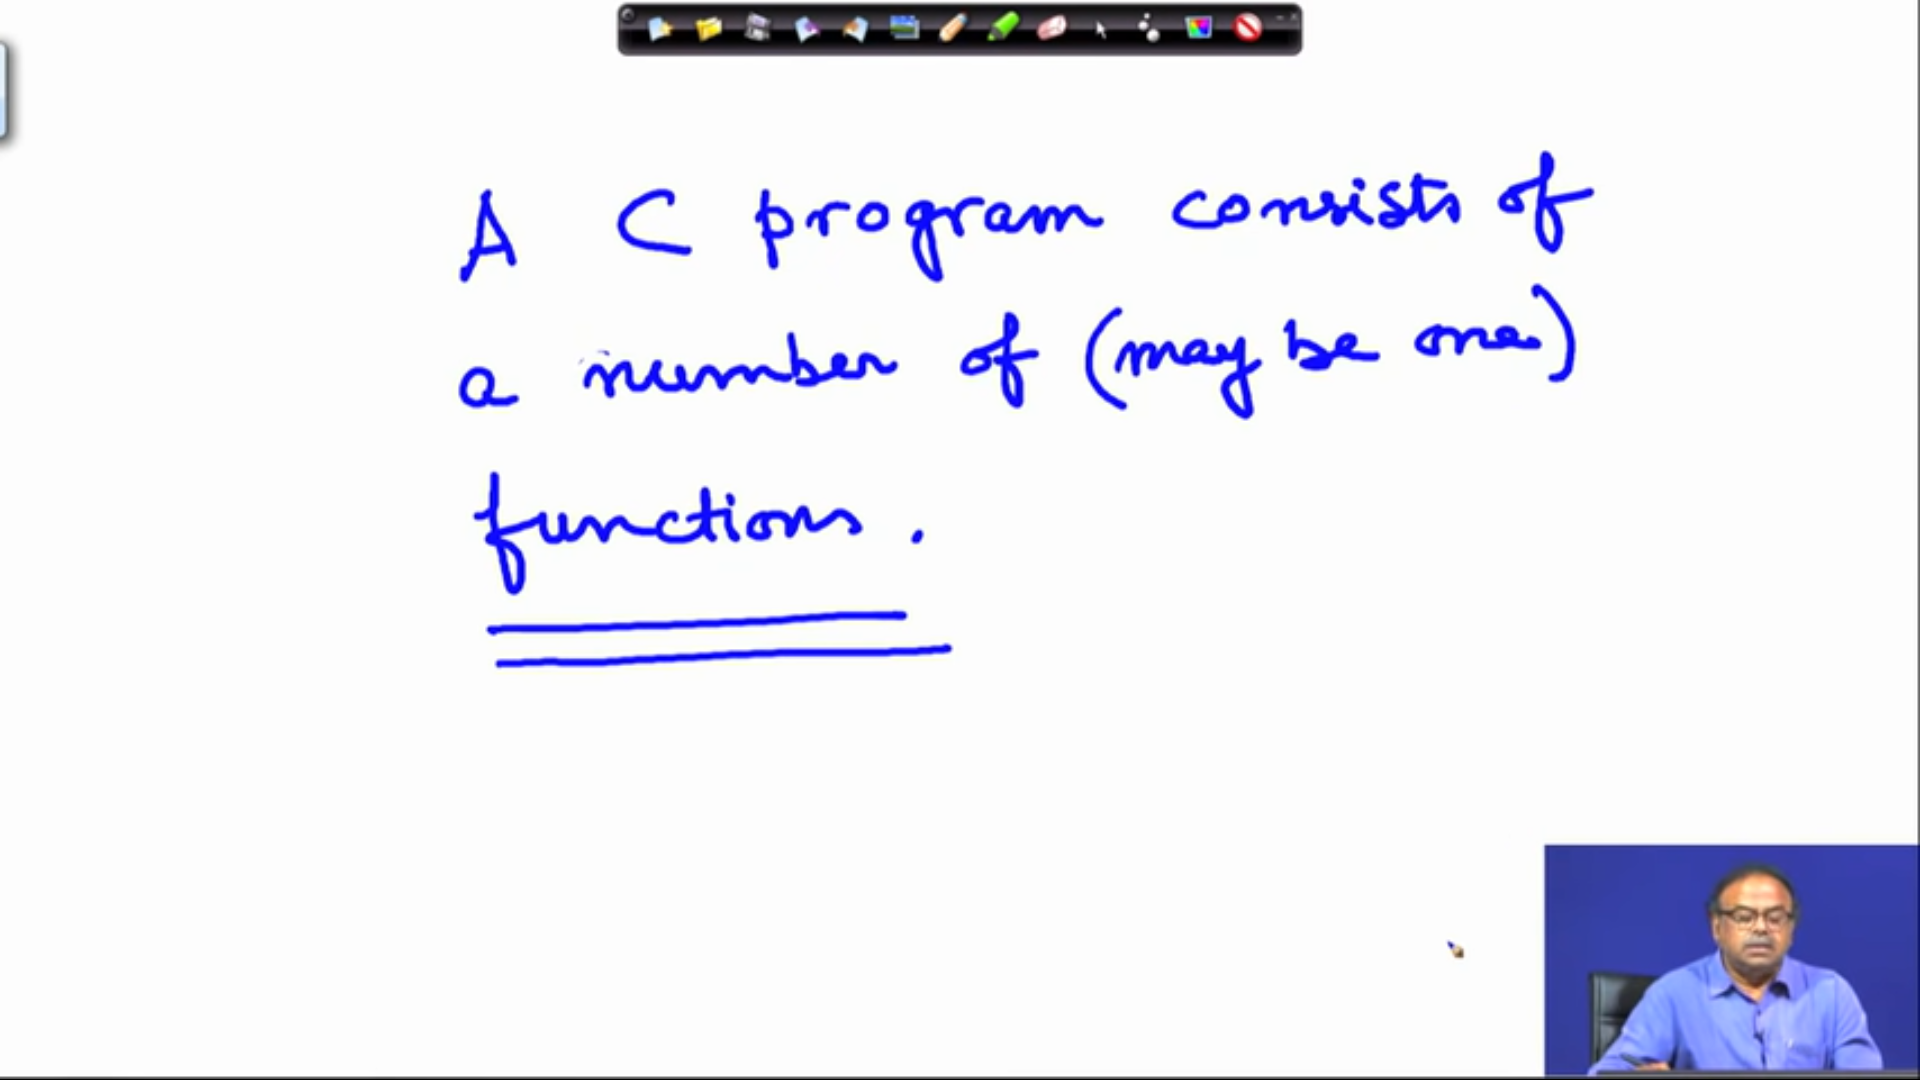 A C program consists of
a number of (may be one)
functions.